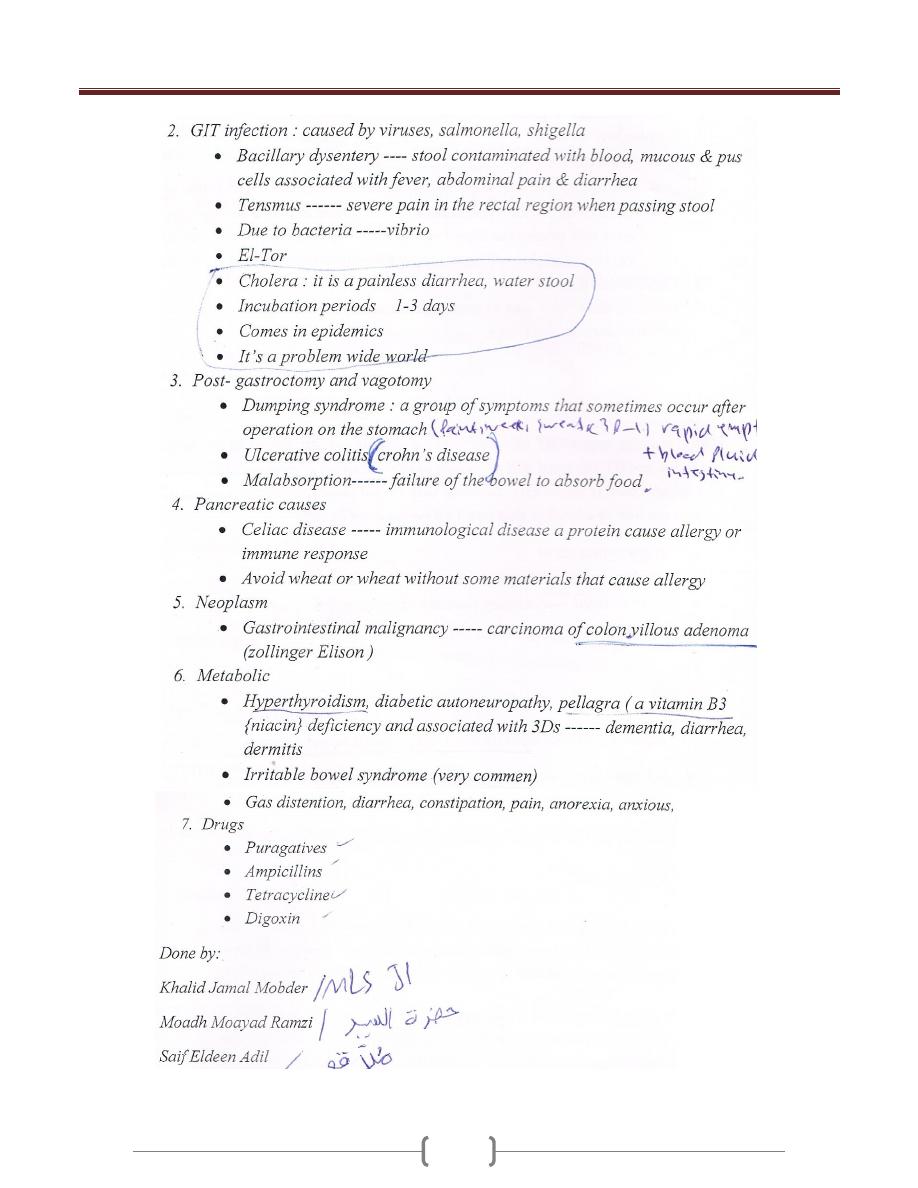 2. GIT infection : caused by viruses, salmonella, shigella
• Bacillary dysentery ---- stool contaminated with blood, mucous & pus
cells associated with fever, abdominal pain & diarrhea
• Tensmus ------ severe pain in the rectal region when passing stool
• Due to bacteria -----vibrio
• El-Tor
• Cholera : it is a painless diarrhea, water stool
• Incubation periods 1-3 days
• Comes in epidemics
• It's a problem wide world
3. Post- gastroctomy and vagotomy
• Dumping syndrome : a group of symptoms that sometimes occur after
operation on the stomach rapid
• Ulcerative colitis(crohn's disease) + blood fluid
• Malabsorption------ failure of the bowel to absorb food.
4. Pancreatic causes
• Celiac disease ----- immunological disease a protein cause allergy or
immune response
• Avoid wheat or wheat without some materials that cause allergy
5. Neoplasm
• Gastrointestinal malignancy ----- carcinoma of colon,villous adenoma
(zollinger Elison )
6. Metabolic
• Hyperthyroidism, diabetic autoneuropathy, pellagra ( a vitamin B3
{niacin} deficiency and associated with 3Ds ------ dementia, diarrhea,
dermitis
• Irritable bowel syndrome (very commen)
• Gas distention, diarrhea, constipation, pain, anorexia, anxious,
7. Drugs
• Puragatives
• Ampicillins
• Tetracycline
• Digoxin
Done by:
Khalid Jamal Mobder / MLS ال
Moadh Moayad Ramzi / حضرة السيد
Saif Eldeen Adil /